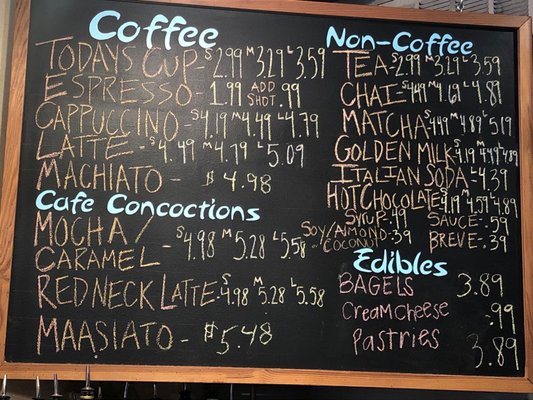 Coffee
TODAYS CUP S2.99 M3.29 L3.59
ESPRESSO- 1.99 ADD SHOT .99
CAPPUCCINO S4.19 M4.49 L4.79
LATTE- S4.49 M4.79 L5.09
MACHIATO- $4.98
Cafe Concoctions
MOCHA/
CARAMEL - S4.98 M5.28 L5.58
REDNECK LATTE- S4.98 M5.28 L5.58
MAASIATO- $5.48
Non-Coffee
TEA- S2.99 M3.29 L3.59
CHAI- S4.49 M4.69 L4.89
MATCHA- S4.49 M4.89 L5.19
GOLDEN MILK- S4.19 M4.49 L4.89
ITALIAN SODA- L4.39
HOT CHOCOLATE- S4.19 M4.59 L4.89
SYRUP- .49 SAUCE- .59
SOY/AMOND
COCONUT -.39 BREVE- .39
Edibles
BAGELS 3.89
CREAM CHEESE - .99
PASTRIES 3.89